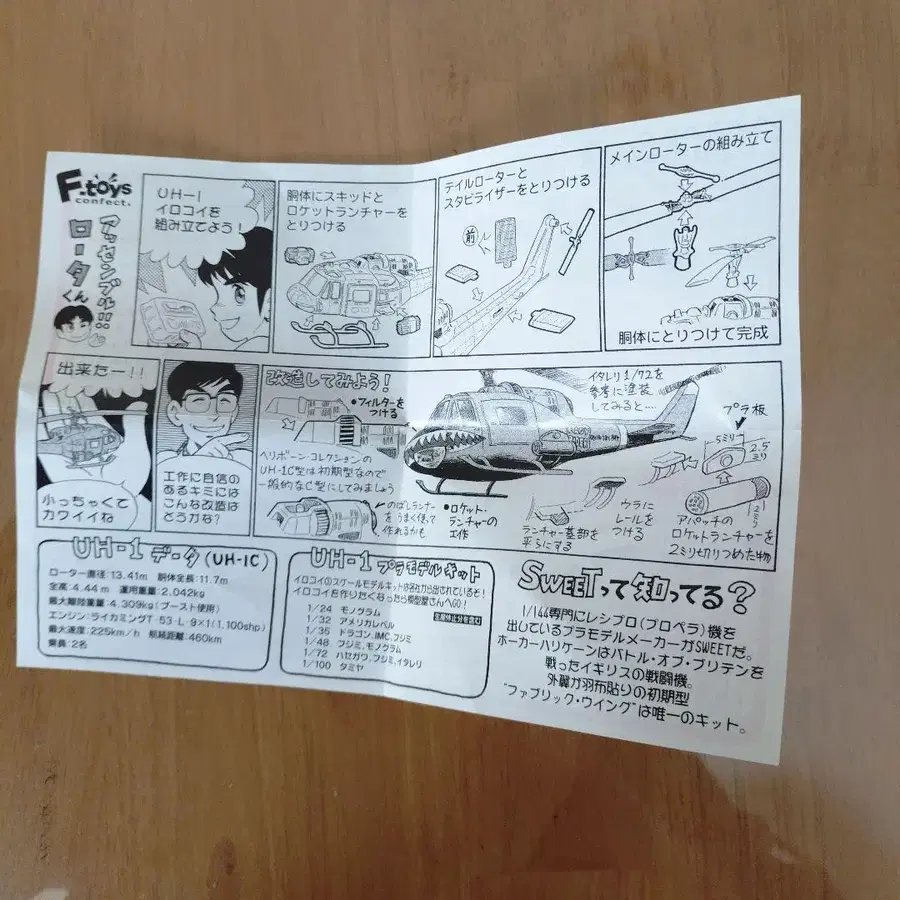 F-toys
confect.
アッセンブル!!
ロータくん
UH-1
イロコイを
組み立てよう!
胴体にスキッドと
ロケットランチャーを
とりつける
テイルローターと
スタビライザーをとりつける
前
メインローターの組み立て
胴体にとりつけて完成
出来たー!!
小っちゃくて
カワイイね
工作に自信の
あるキミには
こんな改造は
どうかな?
改造してみよう!
•フィルターを
つける
ヘリボーン・コレクションの
UH-1C型は初期型なので
一般的なC型にしてみましょう
のばしランナー
をうまく使って
作れるかも
イタレリ 1/72を
参考に塗装
してみると…
•ロケット・
ランチャーの
工作
ランチャー基部を
平らにする
ウラに
レールを
つける
プラ板
5ミリ
2.5
ミリ
2ミリ
アパッチの
ロケットランチャーを
2ミリ切りつめた物
UH-1 データ(UH-1C)
ローター直径:13.41m 胴体全長:11.7m
全高:4.44m 運用重量:2.042kg
最大離陸重量:4.309kg(ブースト使用)
エンジン:ライカミングT-53-L-9×1(1.100shp)
最大速度:225km/h 航続距離:460km
乗員:2名
UH-1 プラモデルキット
イロコイのスケールモデルキットは各社から出されているぞ!
イロコイを作りたくなったら模型屋さんへGO!
生産休止分を含む
1/24 モノグラム
1/32 アメリカレベル
1/35 ドラゴン,IMC,フジミ
1/48 フジミ,モノグラム
1/72 ハセガワ,フジミ,イタレリ
1/100 タミヤ
SWEETって知ってる?
1/144専門にレシプロ(プロペラ)機を
出しているプラモデルメーカーがSWEETだ。
ホーカーハリケーンはバトル・オブ・ブリテンを
戦ったイギリスの戦闘機。
外翼が羽布貼りの初期型
"ファブリック・ウイング"は唯一のキット。